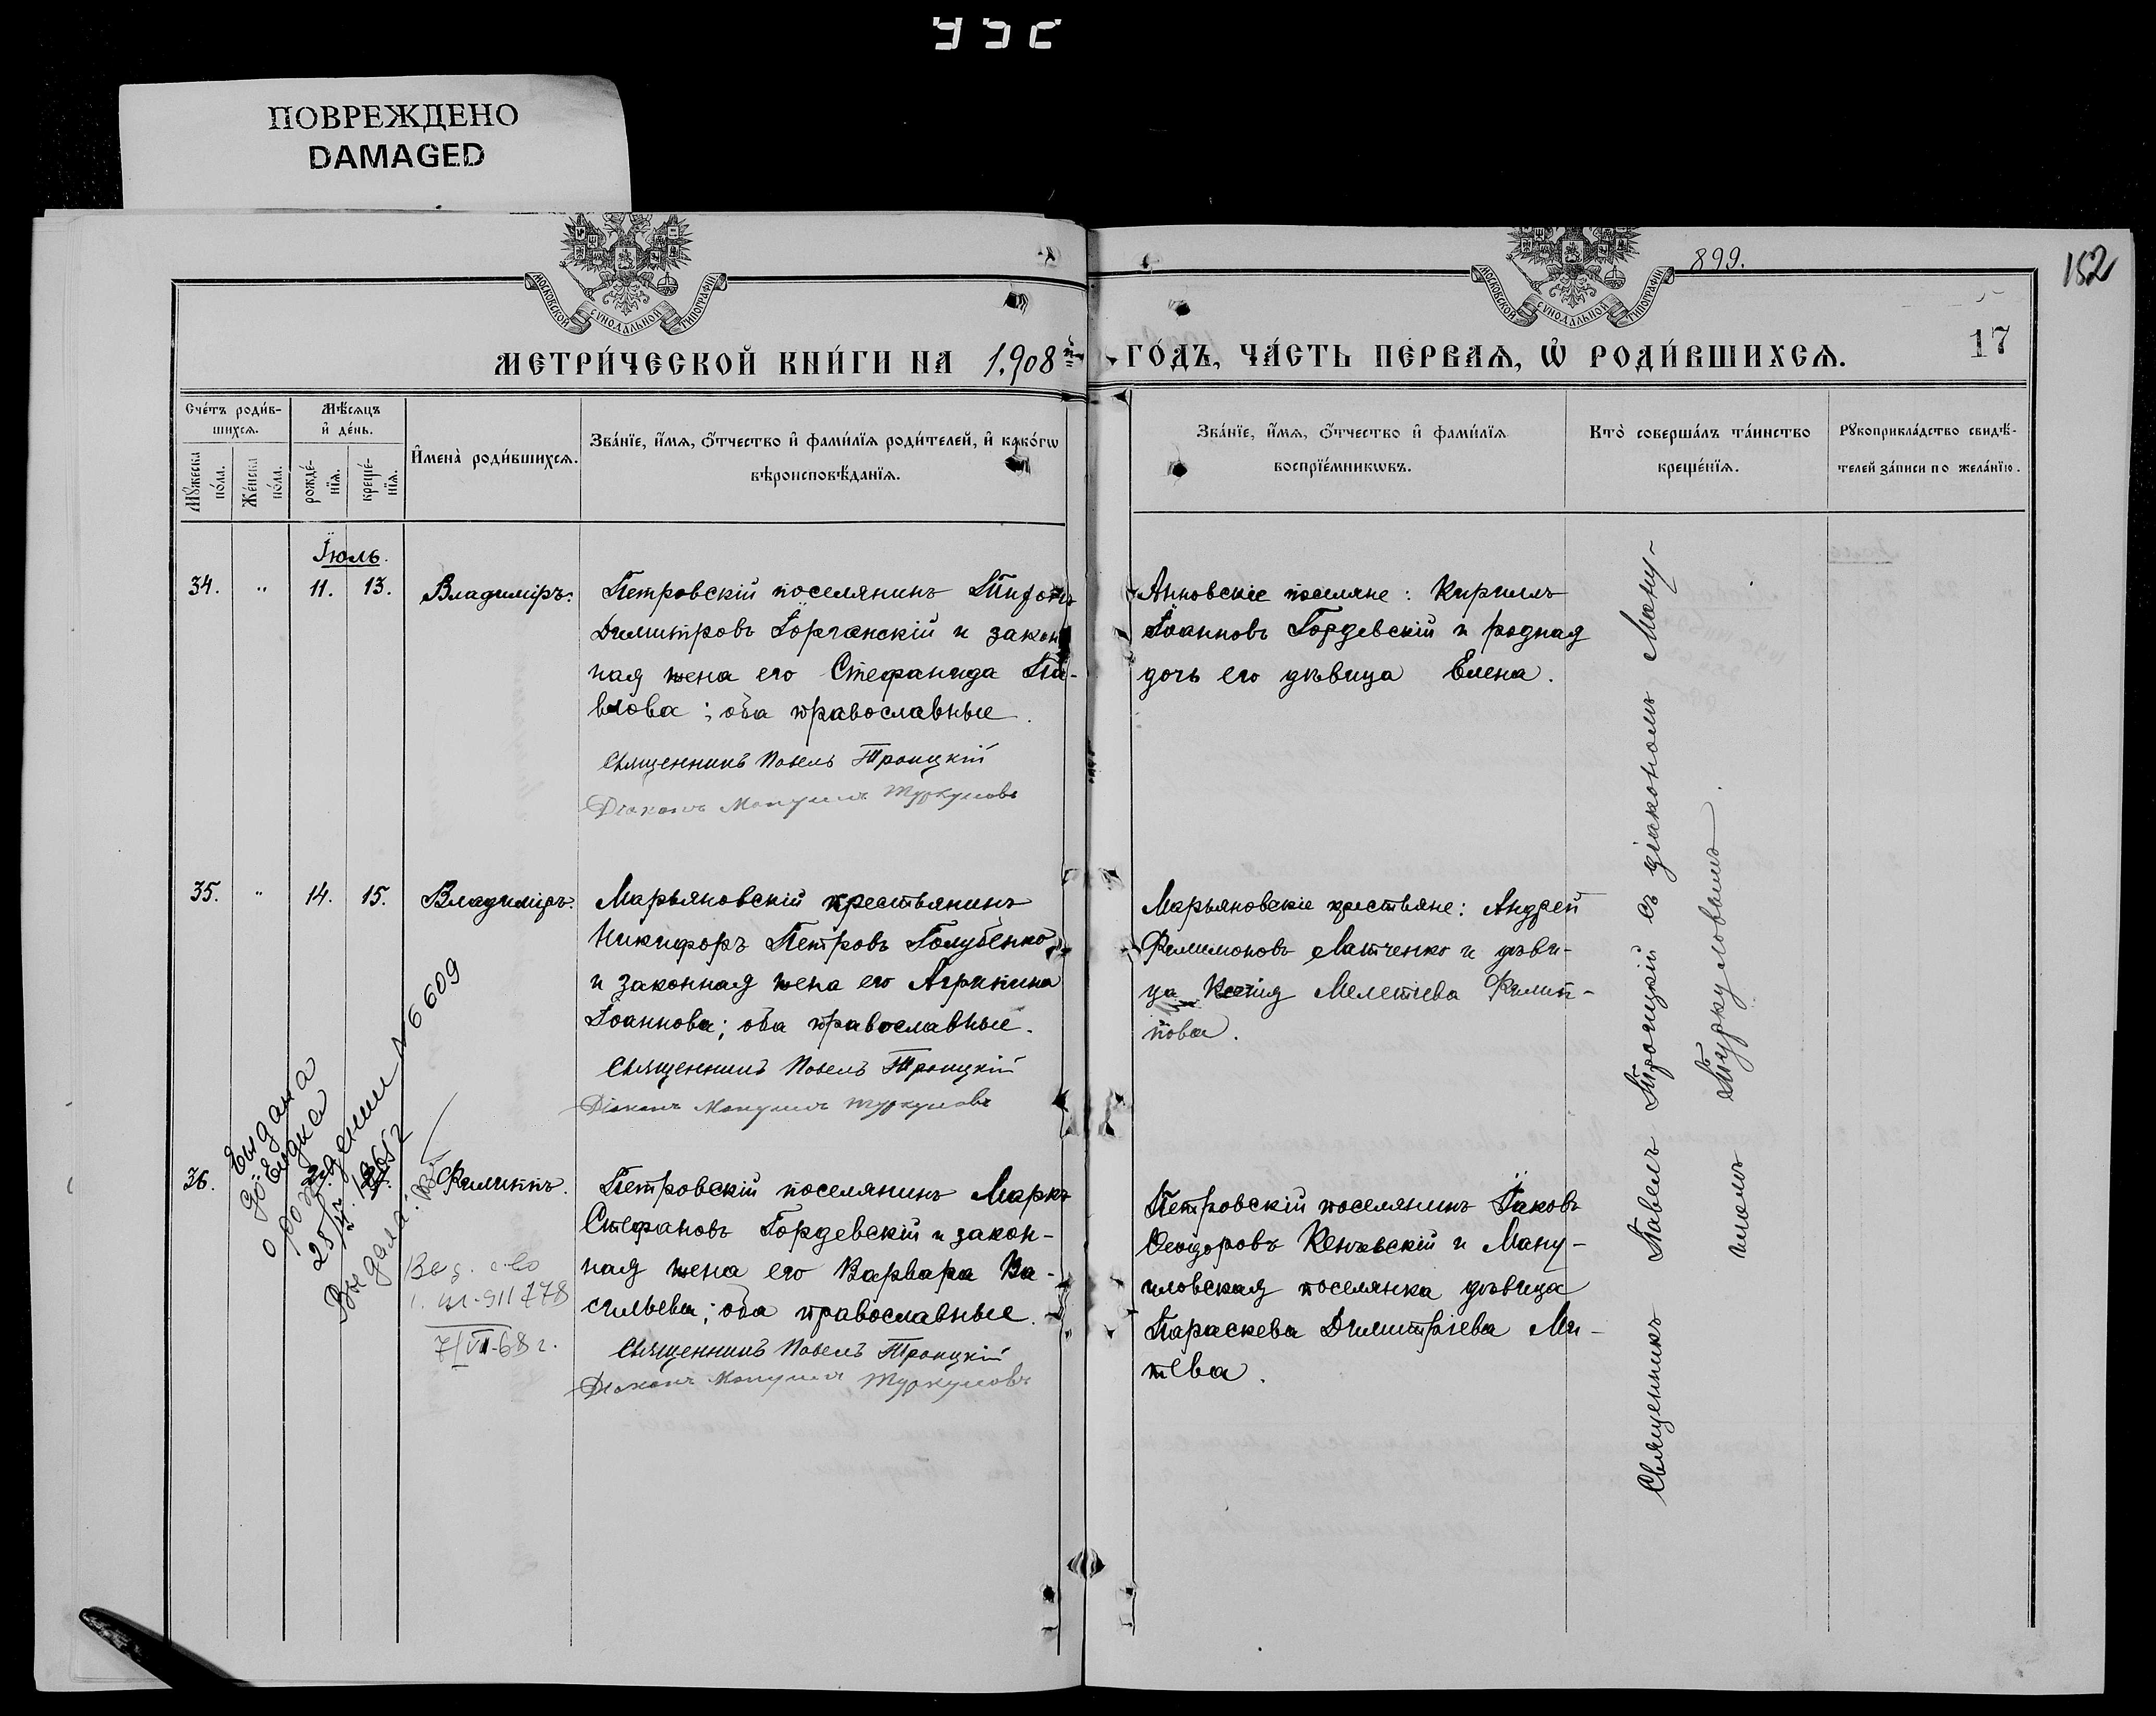 ПОВРЕЖДЕНО
DAMAGED
МОСКОВСКОЙ СѴНОДАЛЬНОЙ ТИПОГРАФІИ
МОСКОВСКОЙ СѴНОДАЛЬНОЙ ТИПОГРАФІИ
899.
152
17
МЕТРИ́ЧЕСКОЙ КНИ́ГИ НА 1908й
ГО́ДЪ, ЧА́СТЬ ПЕ́РВАѦ, Ѡ҆ РОДИ́ВШИХСѦ.
Сче́тъ роди́в-
шихсѧ.
Мꙋ́жеска по́ла.
Же́нска по́ла.
Мѣ́сѧцъ
и҆ де́нь.
рожде́-
нїѧ.
креще́-
нїѧ.
И҆мена̀ роди́вшихсѧ.
Зва́нїе, и҆́мѧ, ѻ҆́тчество и҆ фами́лїѧ роди́телей, и҆ како́гѡ
вѣроисповѣ́данїѧ.
Зва́нїе, и҆́мѧ, ѻ҆́тчество и҆ фами́лїѧ
воспрїе́мникѡвъ.
Кто̀ соверша́лъ та́инство
креще́нїѧ.
Рꙋкоприкла́дство свидѣ́-
телей за́писи по жела́нїю.
Іюль.
34. " 11. 13. Владиміръ.
Петровскій поселянинъ
Димитровъ и закон
ная жена его Стефанида Па-
влова; оба православные.
Священникъ Павелъ Троицкій
Діаконъ Мануилъ Туркуловъ
Анновскіе поселяне: Кириллъ
Іоанновъ Гордевскій и родная
дочь его дѣвица Елена.
35. " 14. 15. Владиміръ.
Марьяновскій крестьянинъ
Никифоръ Петровъ Голубенко
и законная жена его Агрипина
Іоаннова; оба православные.
Священникъ Павелъ Троицкій
Діаконъ Мануилъ Туркуловъ
Марьяновскіе крестьяне: Андрей
Филимоновъ Латченко и дѣви-
ца Мелетіева Филип-
пова.
36. Филиппъ.
Петровскій поселянинъ Маркъ
Стефановъ Гордевскій и закон-
ная жена его Варвара Ва-
сильева; оба православные.
Священникъ Павелъ Троицкій
Діаконъ Мануилъ Туркуловъ
Петровскій поселянинъ Іаковъ
Ѳеодоровъ и Ману-
иловская поселянка дѣвица
Параскева Димитріева Ми-
тева.
Выдана
справка
о рождении № 6609
Выдала:
911778
7/VII-68 г.
Священникъ Павелъ Троицкій съ діакономъ Ману-
иломъ Туркуловымъ.